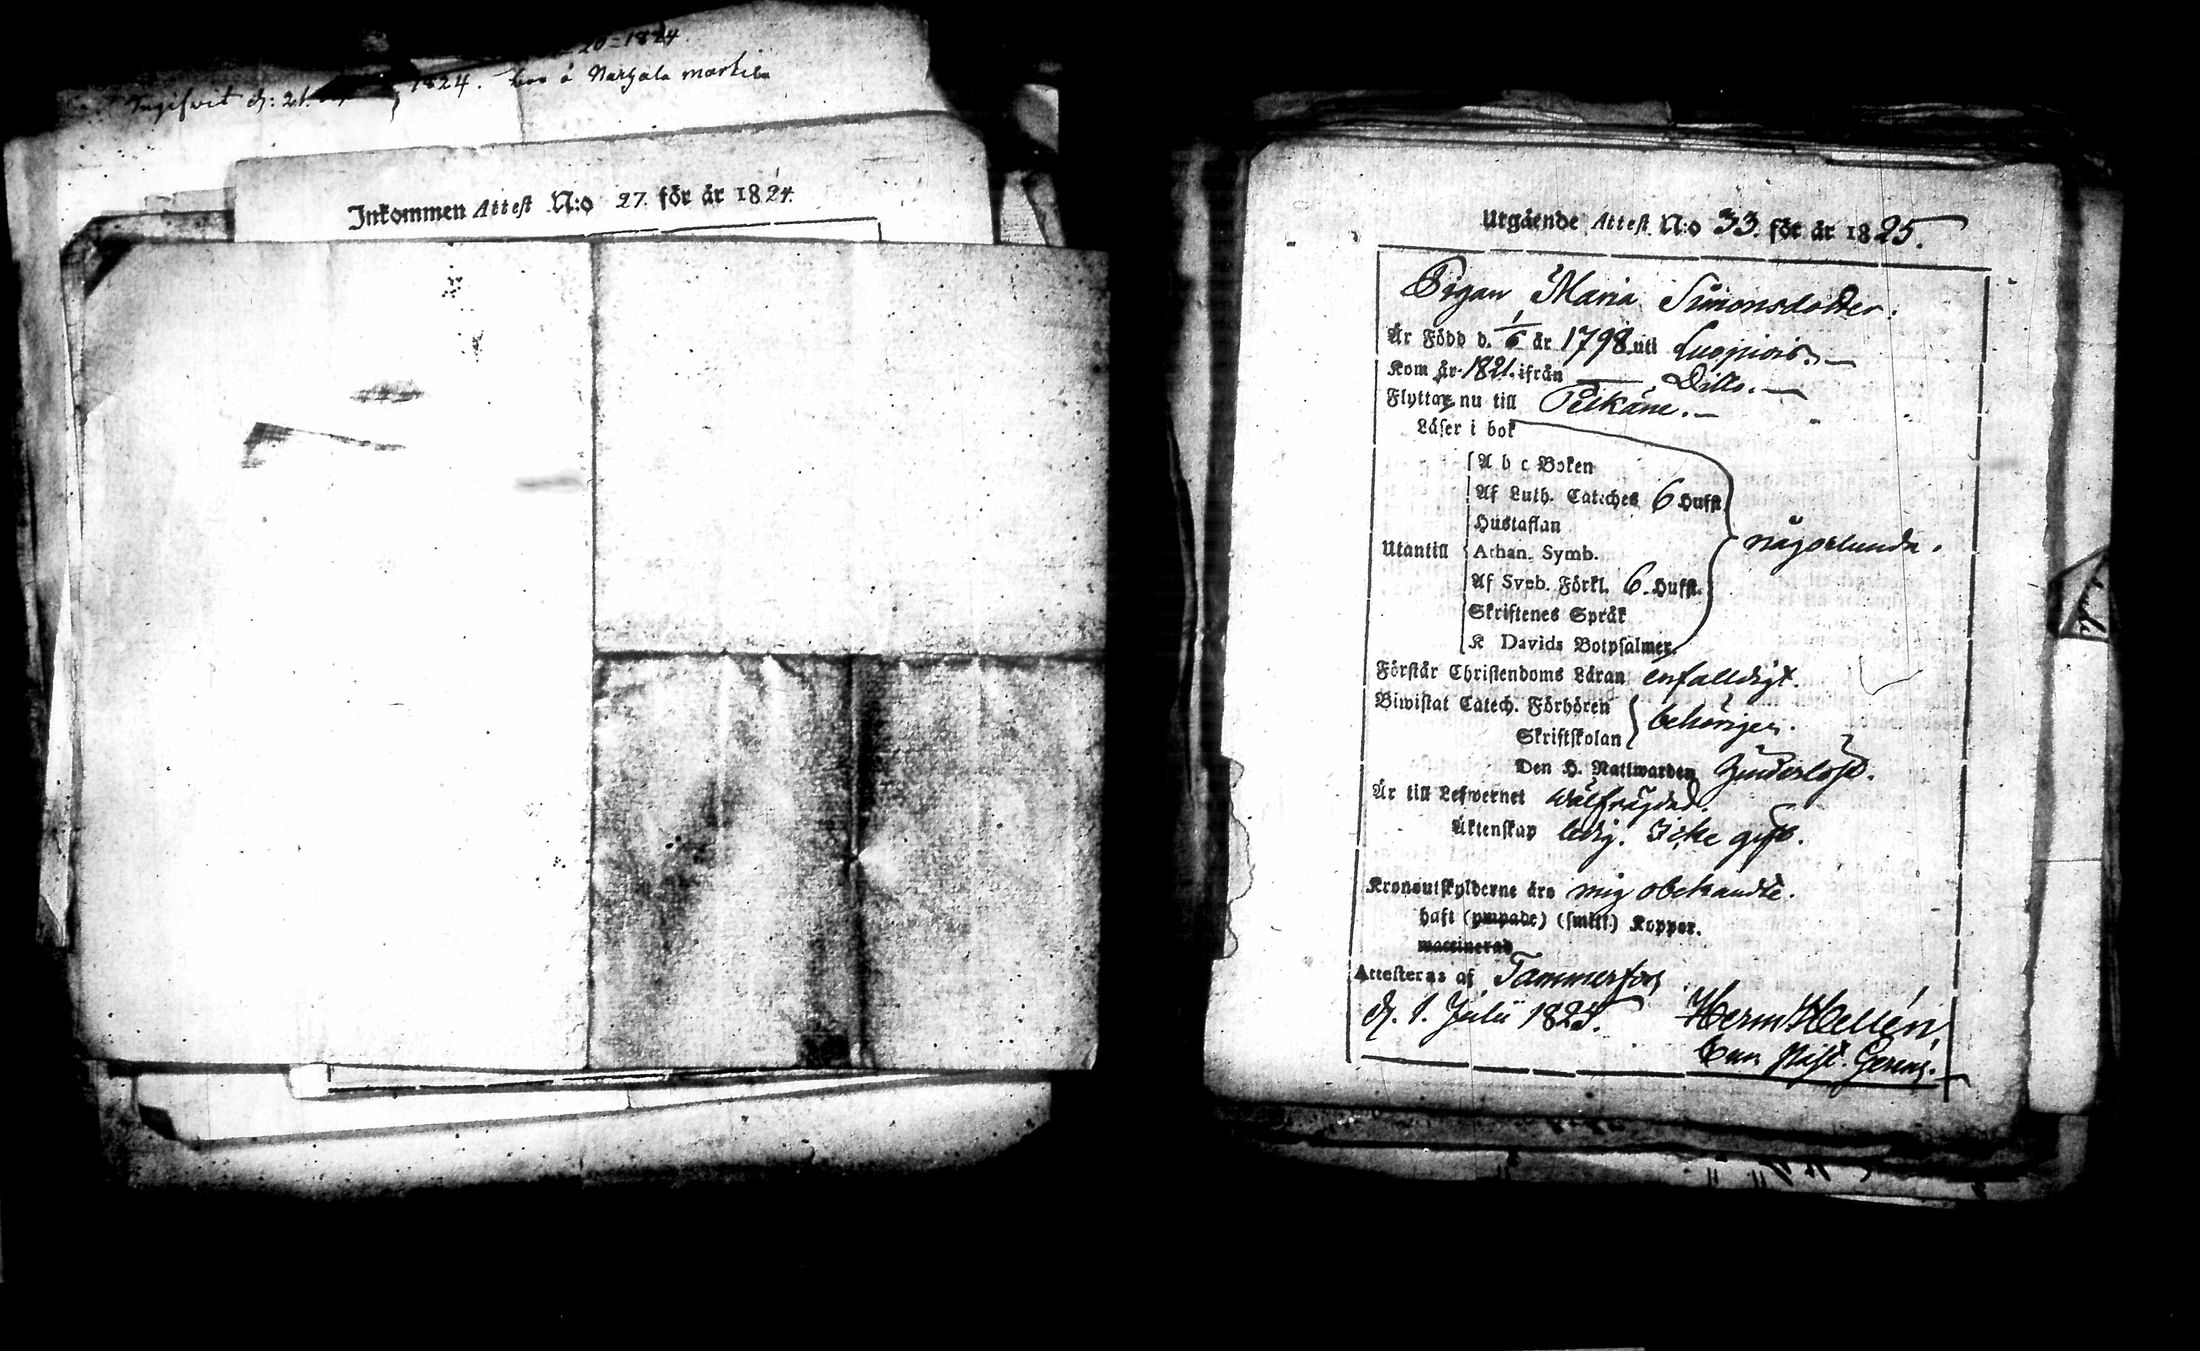 20=1824
1824. hos å Narsala
Inkommen Attest N:o 27. för år 1824.
Utgående Attest N:o 33. för år 1825.
Pigan Maria Simonsdotter.
Är Född d. 1/6 år 1798 uti Luopiois.
Kom år 1821. ifrån Ditto.
Flyttar nu till Pelkäne.
Läser i bok
A b c Boken
Af Luth. Cateches 6 Hufst.
Hustaflan
Utantill Athan. Symb. någorlunda.
Af Sveb. Förkl. 6. Hufst.
Skriftenes Språk
K Davids Botpsalmer.
Förstår Christendoms Läran enfalldigt.
Biwistat Catech. Förhören behörigen.
Skriftskolan
Den H. Nattwarden
Är till Lefwernet wälfrägdad.
Äktenskap ledig. Icke gift.
Kronoutskylderne äro mig obekandte.
haft (ympade) (smitt) Koppor.
waccinerad
Attesteras af Tammerfors
d. 1. Julii 1825. Herm Hellén,